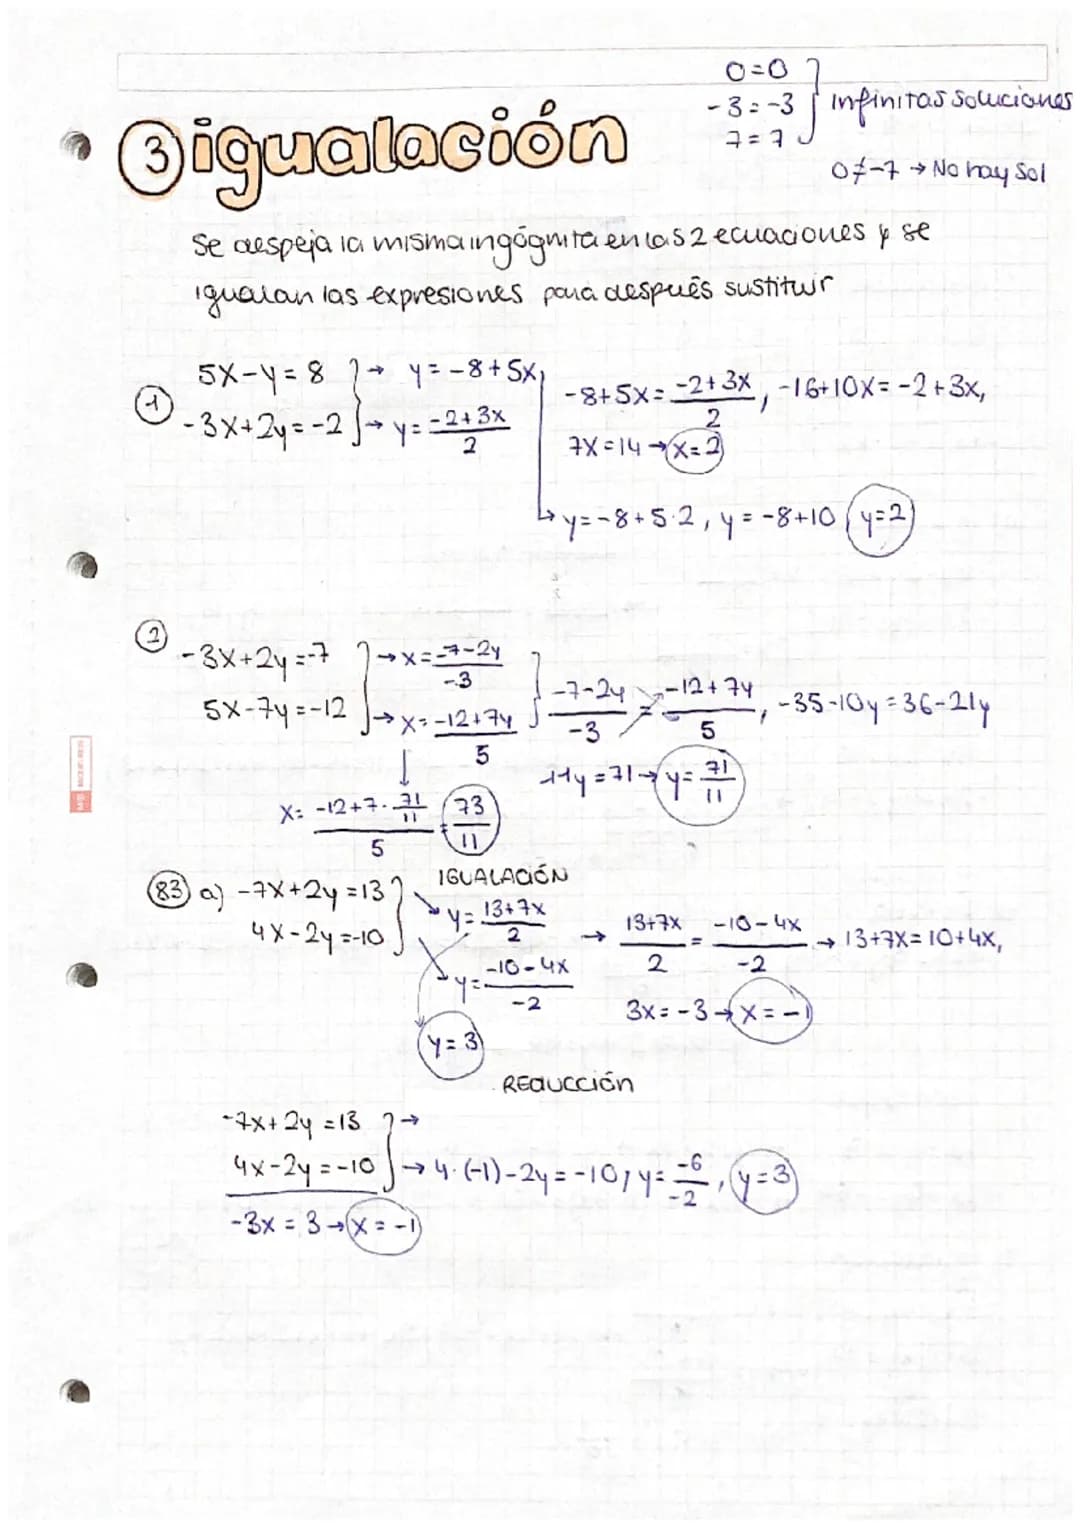 0=0
-3=-3 } infinitas soluciones
7=7
0≠-7 → No hay Sol
③ igualación
Se despeja la misma ingógnita en las 2 ecuaciones y se
igualan las expresiones para después sustituir
① 5x-y=8 } → y=-8+5x
-3x+2y=-2 } → y=(-2+3x)/2
-8+5x=(-2+3x)/2, -16+10x=-2+3x,
7x=14 → x=2
↳ y=-8+5·2, y=-8+10 y=2
② -3x+2y=-7 } → x=(-7-2y)/-3
5x-7y=-12 } → x=(-12+7y)/5
(-7-2y)/-3 = (-12+7y)/5, -35-10y=36-21y
11y=71 → y=71/11
x=(-12+7·71/11)/5 = 73/11
IGUALACIÓN
83 a) -7x+2y=13 } y=(13+7x)/2
4x-2y=-10 } y=(-10-4x)/-2
→ (13+7x)/2 = (-10-4x)/-2 → 13+7x=10+4x,
3x=-3 → x=-1
y=3
REDUCCIÓN
-7x+2y=13 } →
4x-2y=-10 } → 4·(-1)-2y=-10, y=-6/-2, y=3
-3x=3 → x=-1